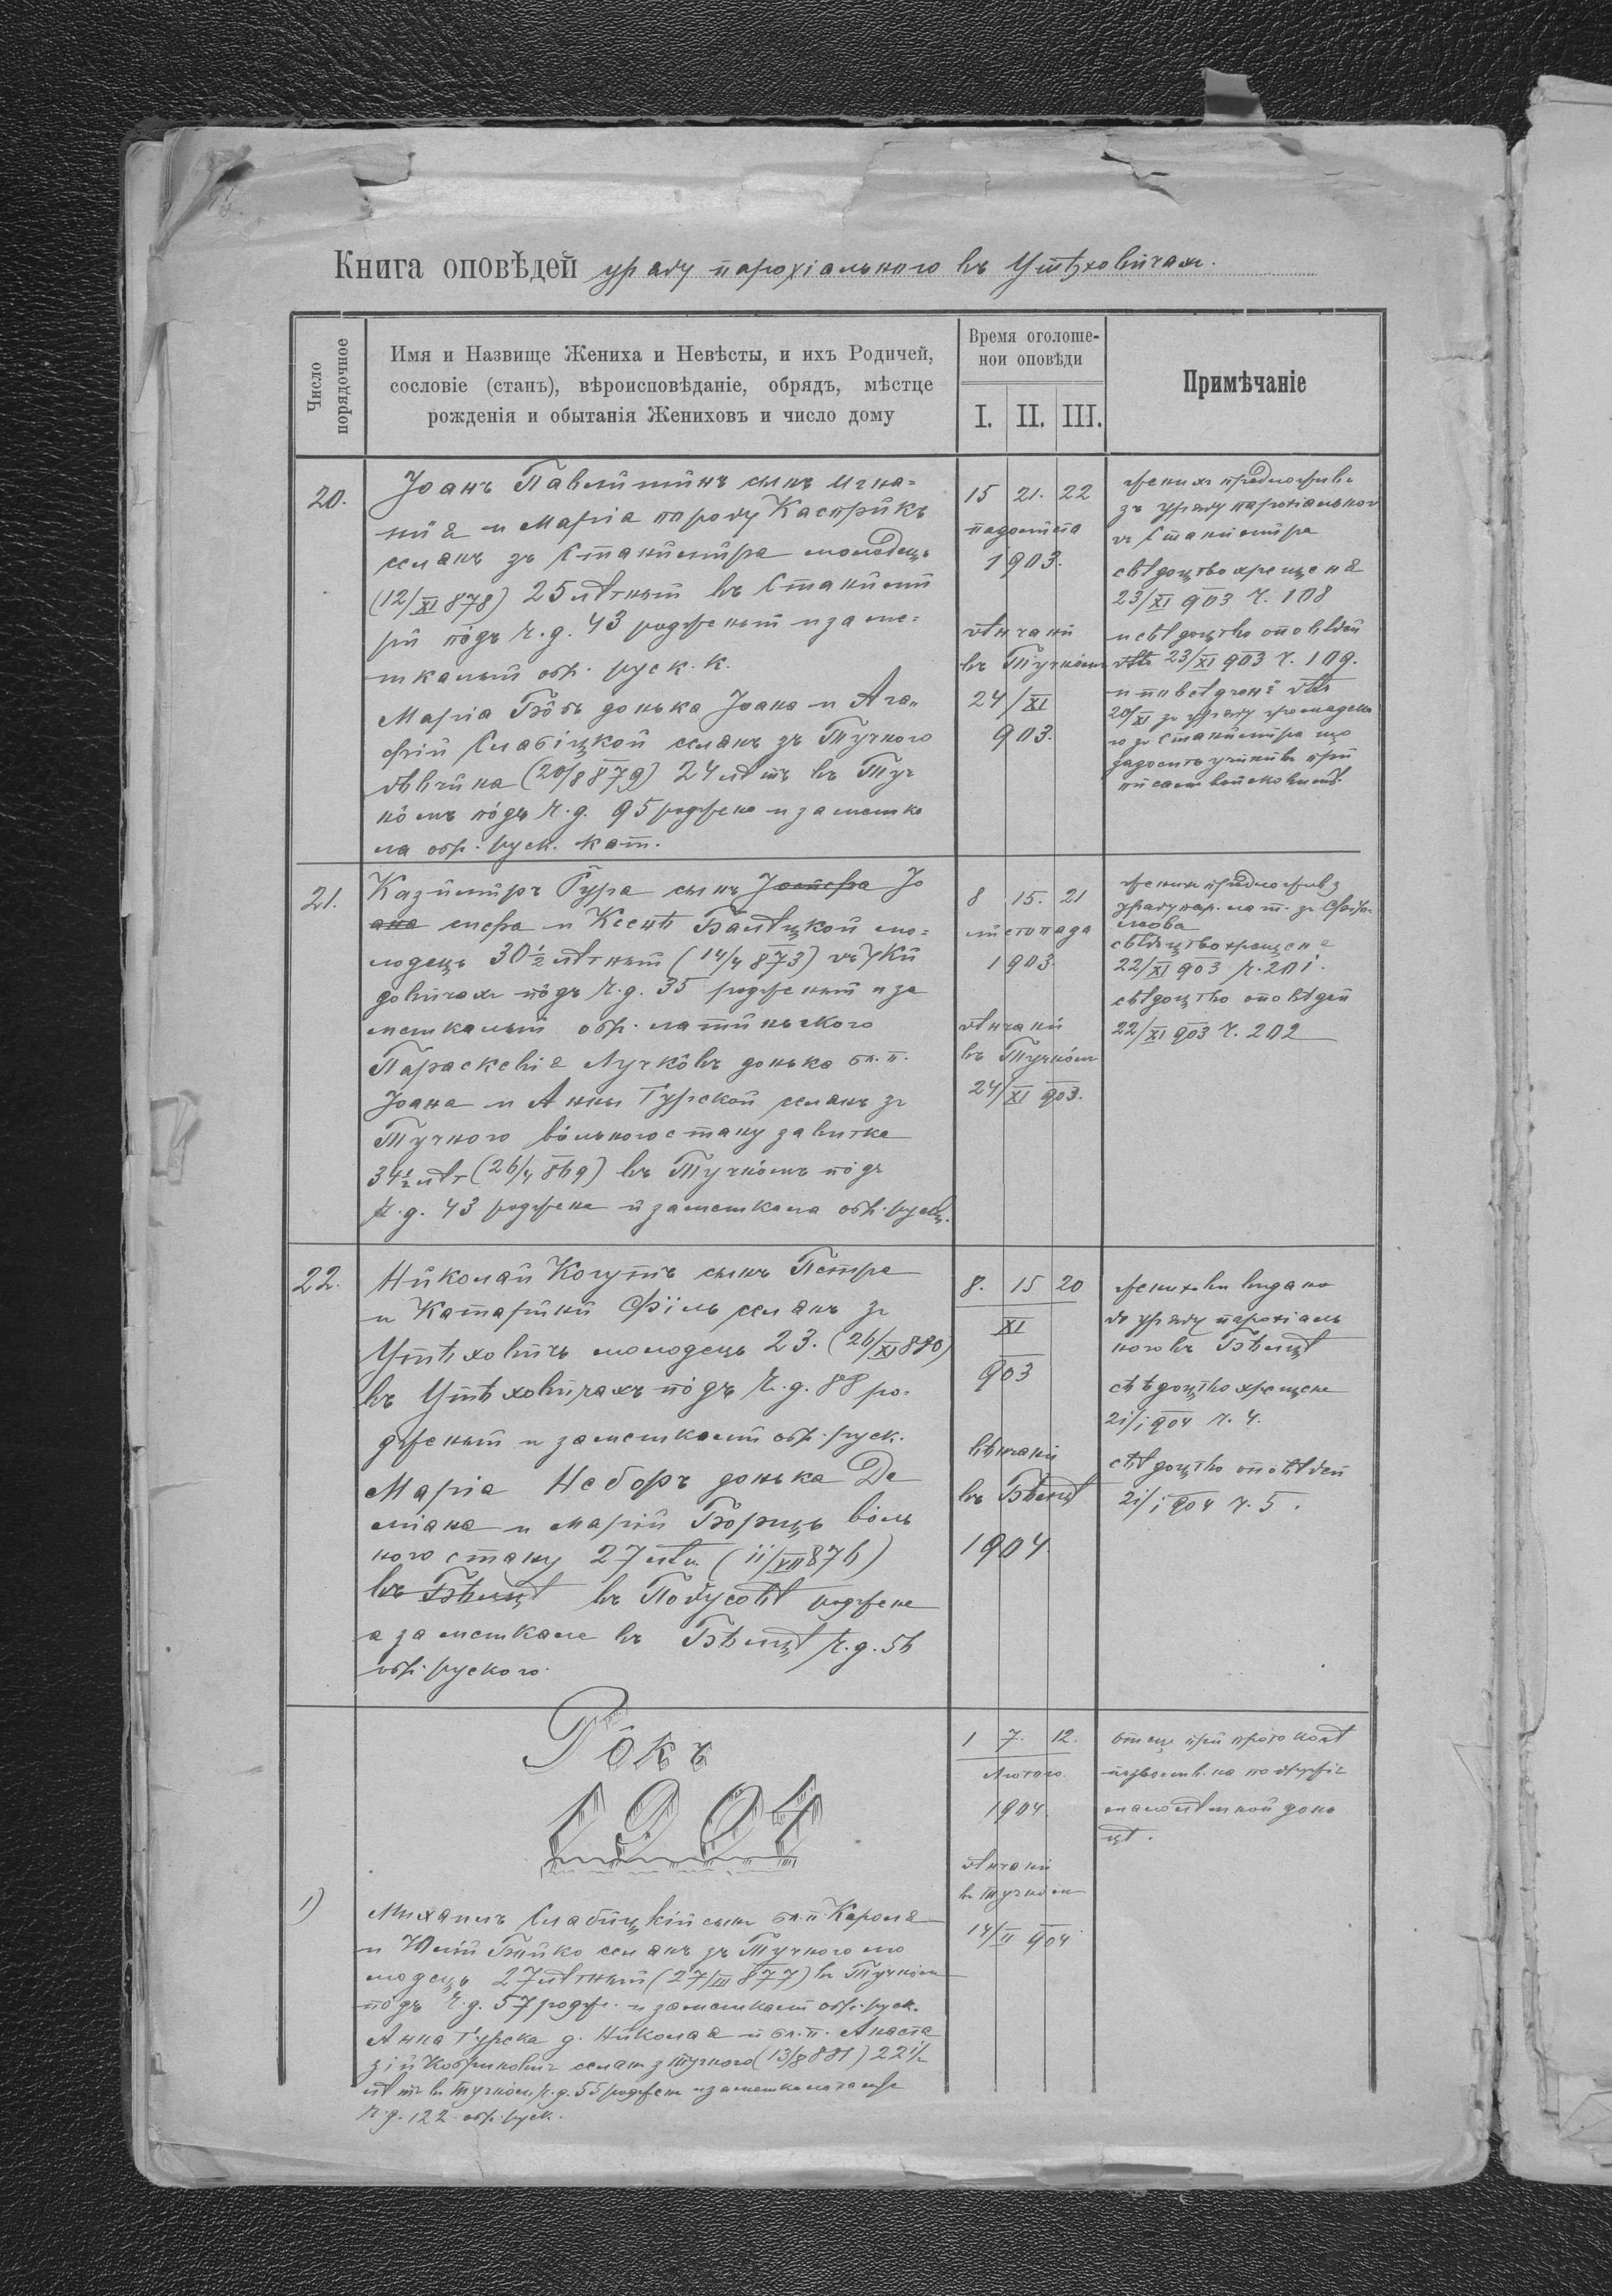 Книга оповѣдей уряду парохіального въ Утѣховичах.
Число порядочное
Имя и Назвище Жениха и Невѣсты, и ихъ Родичей,
сословіе (станъ), вѣроисповѣданіе, обрядъ, мѣстце
рожденія и обытанія Жениховъ и число дому
Время оголоше-
нои оповѣди
I. II. III.
Примѣчаніе
20.
Јоанъ сынъ Игна=
и Маріа породу Касприкъ
селянъ зъ Станимира молодецъ
(12/XI 878) 25 лѣтный въ Станими
ри подъ ч. д. 43 родженый и заме=
шкалый обр. руск. к.
Маріа Бôбъ донька Јоана и Ага=
фіи Слабіцкой селянъ зъ Тучного
дѣвчина (20/8 879) 24 лѣтъ въ Туч
нôмъ пôдъ ч. д. 95 роджена и замешка
ла обр. руск. кат.
15 21. 22
падолиста
1903.
вѣнчани
въ Тучнôм
24/XI
903.
жених предложив
зъ уряду парохіального
въ Станимира
свѣдоцтво
23/XI 903 ч. 108
и свѣдоцтво оповѣдей
23/XI 903 ч. 109.
20/XI зъ уряду громадско
го зъ Станимира що
21.
Казимиръ Гура сынъ Јо
зефа и Ксенѣ мо=
лодець 30 1/2 лѣтный (14/4 873) въ Ки
довичах пôдъ ч. д. 35 родженый и за
мешкалый обр. латиньского
Параскевіа Лучкôвъ донька бл. п.
Јоана и Анны Гурской селянъ зъ
Тучного вôльного стану завитка
34 1/2 лѣт (26/4 869) въ Тучнôмъ пôдъ
ч. д. 43 роджена и замешкала обр. руск.
8 15. 21
листопада
1903.
вѣнчани
въ Тучнôм
24/XI 903.
жених предложив з
уряду пар. лат. зъ
свѣдоцтво крещеня
22/XI 903 ч. 201.
свѣдоцтво оповѣдей
22/XI 903 ч. 202
22.
Николай Когутъ сынъ Петра
и Катарини Філь селянъ зъ
Утѣховичъ молодець 23. (26/XI 880)
въ Утѣховичахъ пôдъ ч. д. 88 ро-
дженый и замешкалый обр. руск.
Маріа Неборъ донька Де
міана и Маріи Борищъ вôль
ного стану 27 лѣт (11/XII 876)
въ Бѣлцѣ въ Подусовѣ роджена
а замешкала въ Бѣлцѣ ч. д. 56
обр. руского.
8. 15 20
XI
903
вѣнчани
въ Бѣлцѣ
1904
женихови видано
до уряду парохіаль
ного въ Бѣлцѣ
свѣдоцтво крещеня
21/1 904 ч. 4.
свѣдоцтво оповѣдей
21/1 904 ч. 5.
Рôкъ
1904
1)
Михаилъ Слабицкій сынъ бл. п. Кароля
и Юліи Бойко селянъ зъ Тучного мо
лодець 27 лѣтный (27/III 877) въ Тучнôм
пôдъ ч. д. 57 родж. и замешкалый обр. руск.
Анна Гурска д. Николая и бл. п. Анаста
зіи селян з Тучного (13/8 881) 22 1/2
лѣтъ въ Тучнôм ч. д. 55 роджена и замешкала
ч. д. 122. обр. руск.
1 7. 12.
Лютого
1904.
вѣнчани
въ Тучнôм
14/II 904
отець при протоколѣ
позволив на
малолѣтной донь
цѣ.